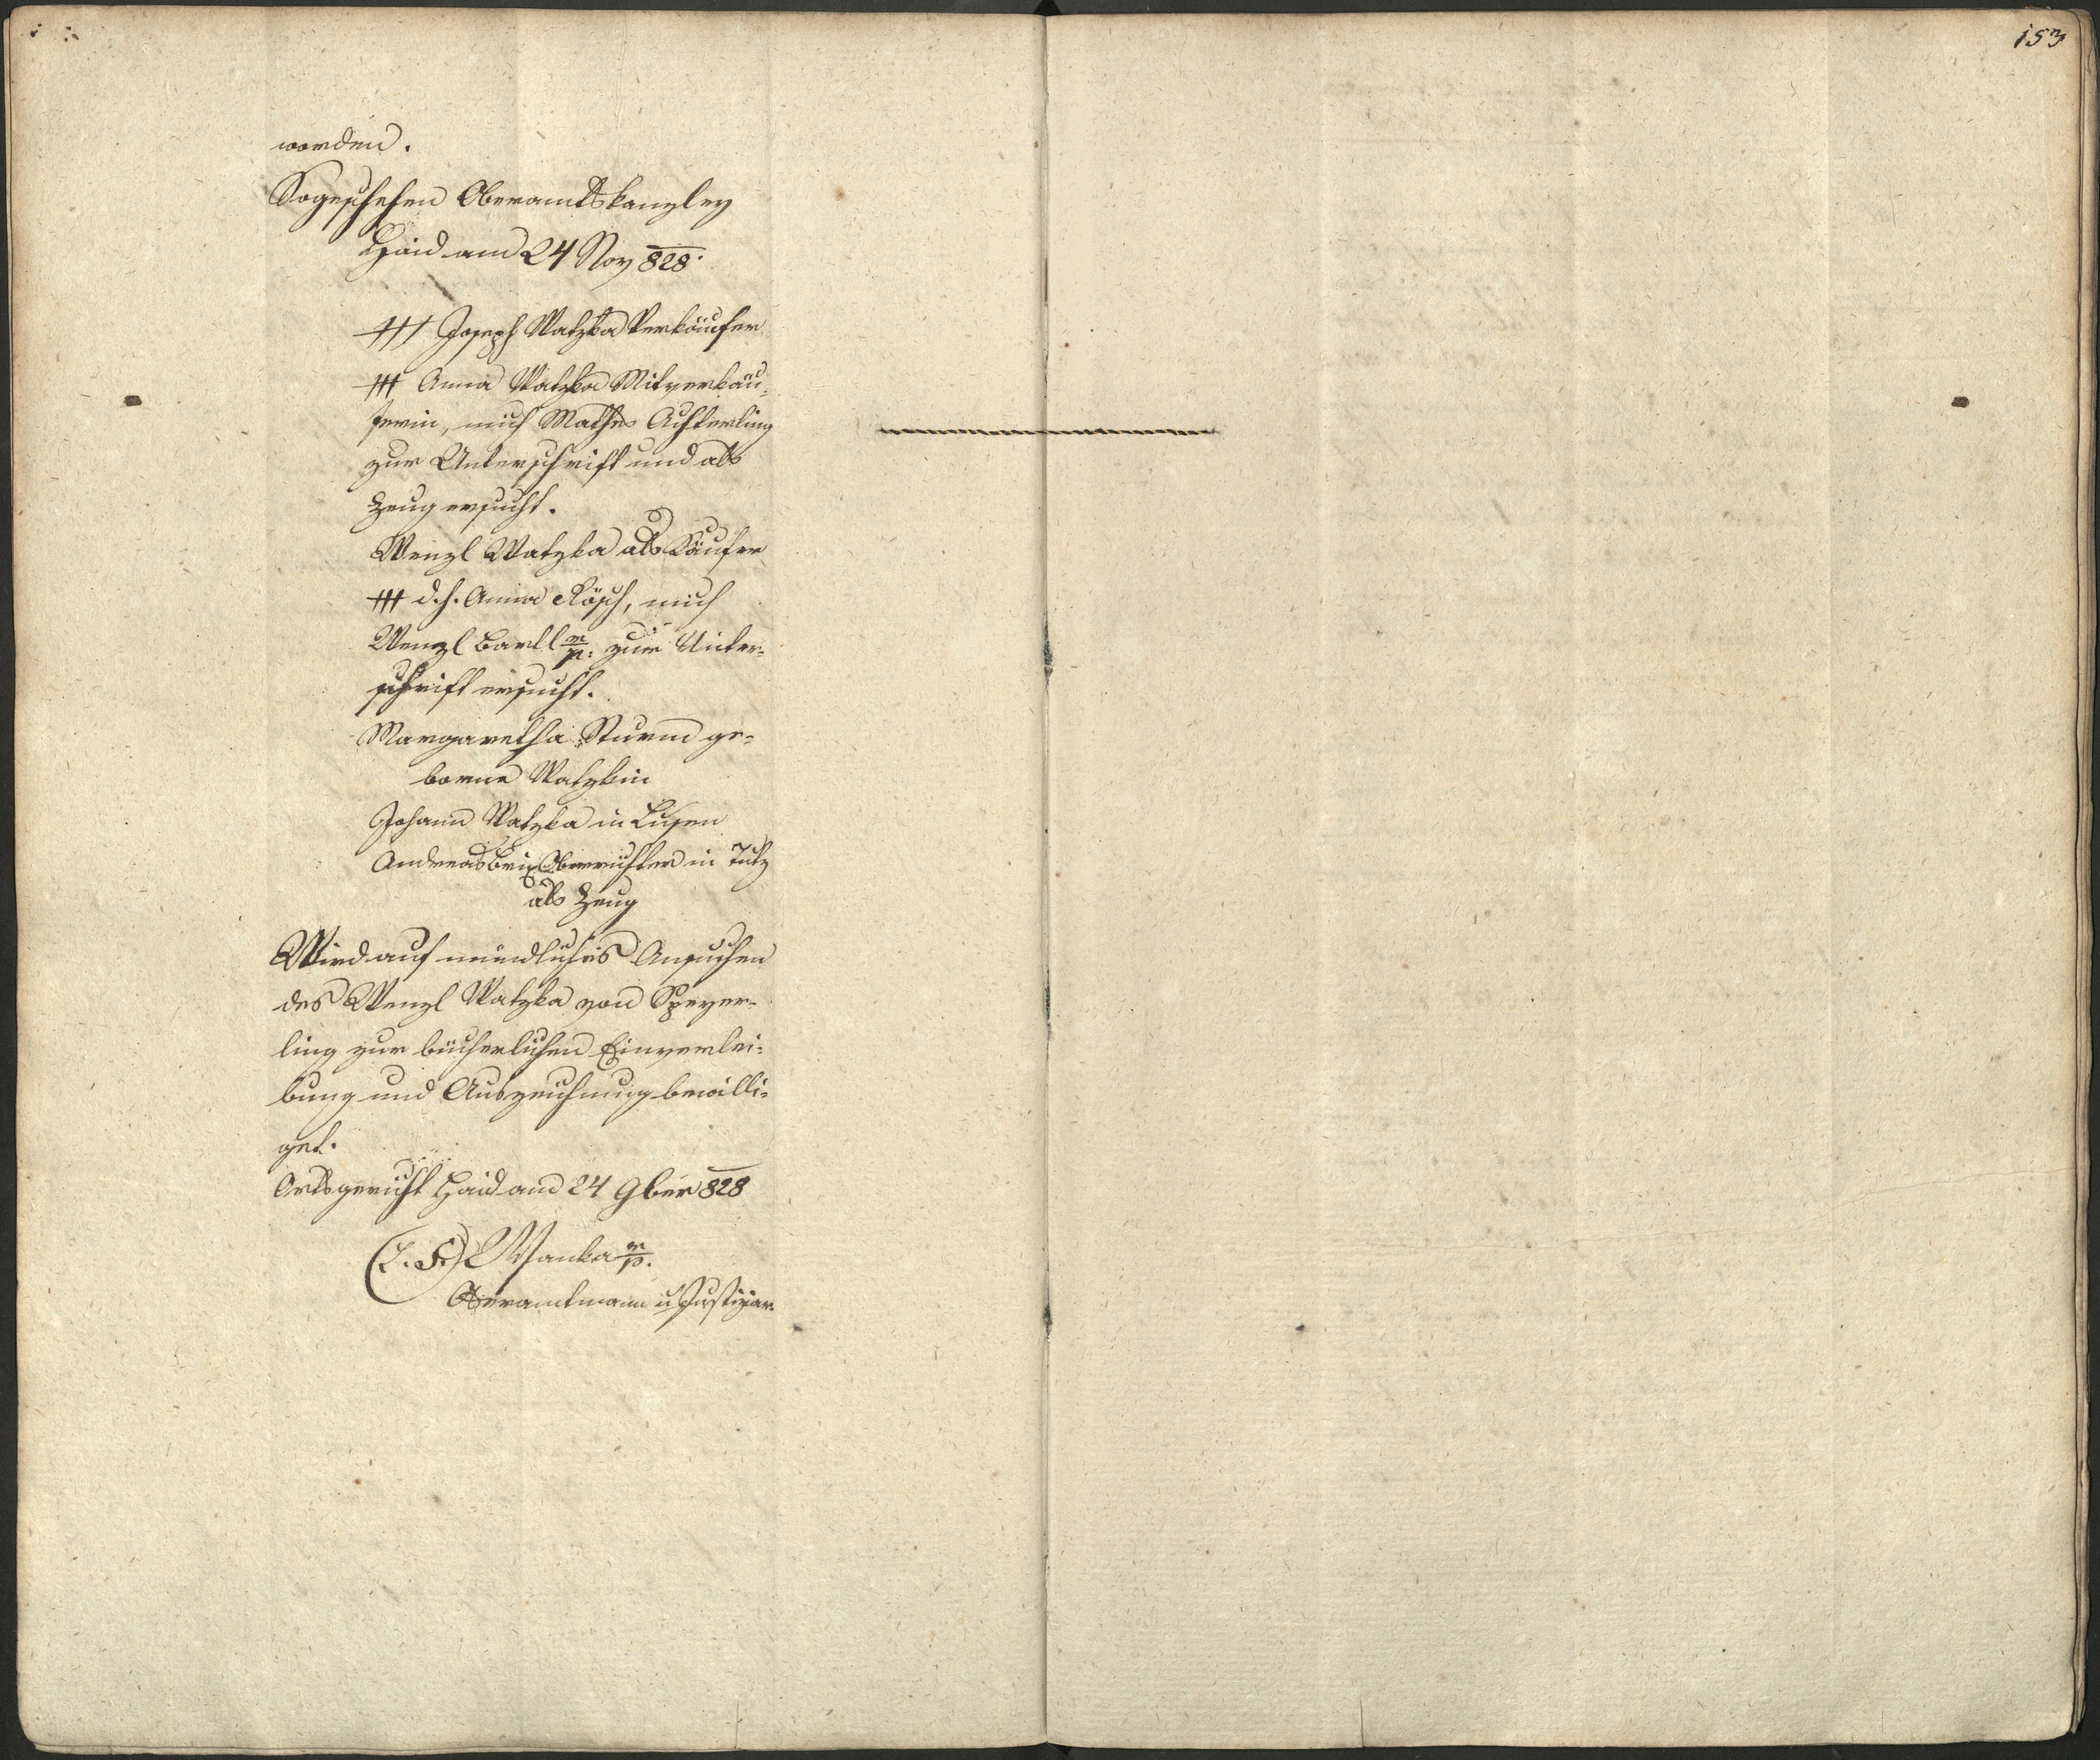 153
worden.
Sogeschehen Oberamtskanzley
Haid am 24 Nov 828.
+++ Joseph Watzka Verkäufer
+++ Anna Watzka Mitverkäu-
ferin, mich Mathes Achterling
zur Unterschrift und als
Zeug ersucht.
Wenzl Watzka als Käufer
+++ d. h. Anna Rösch, mich
Wenzl Bartl m/p: zur Unter-
schrift ersucht.
Margaretha Sturm ge-
borne Watzkin
Johann Watzka in
Andreas Oberrichter in
als Zeug
Wird auf mündliches Ansuchen
des Wenzl Watzka von Speyer-
ling zur bücherlichen Einverlei-
bung und Auszeichnung bewilli-
get.
Ortsgericht Haid am 24 9ber 828
(L. S.) Wanka m/p.
Oberamtmann u Justiziar